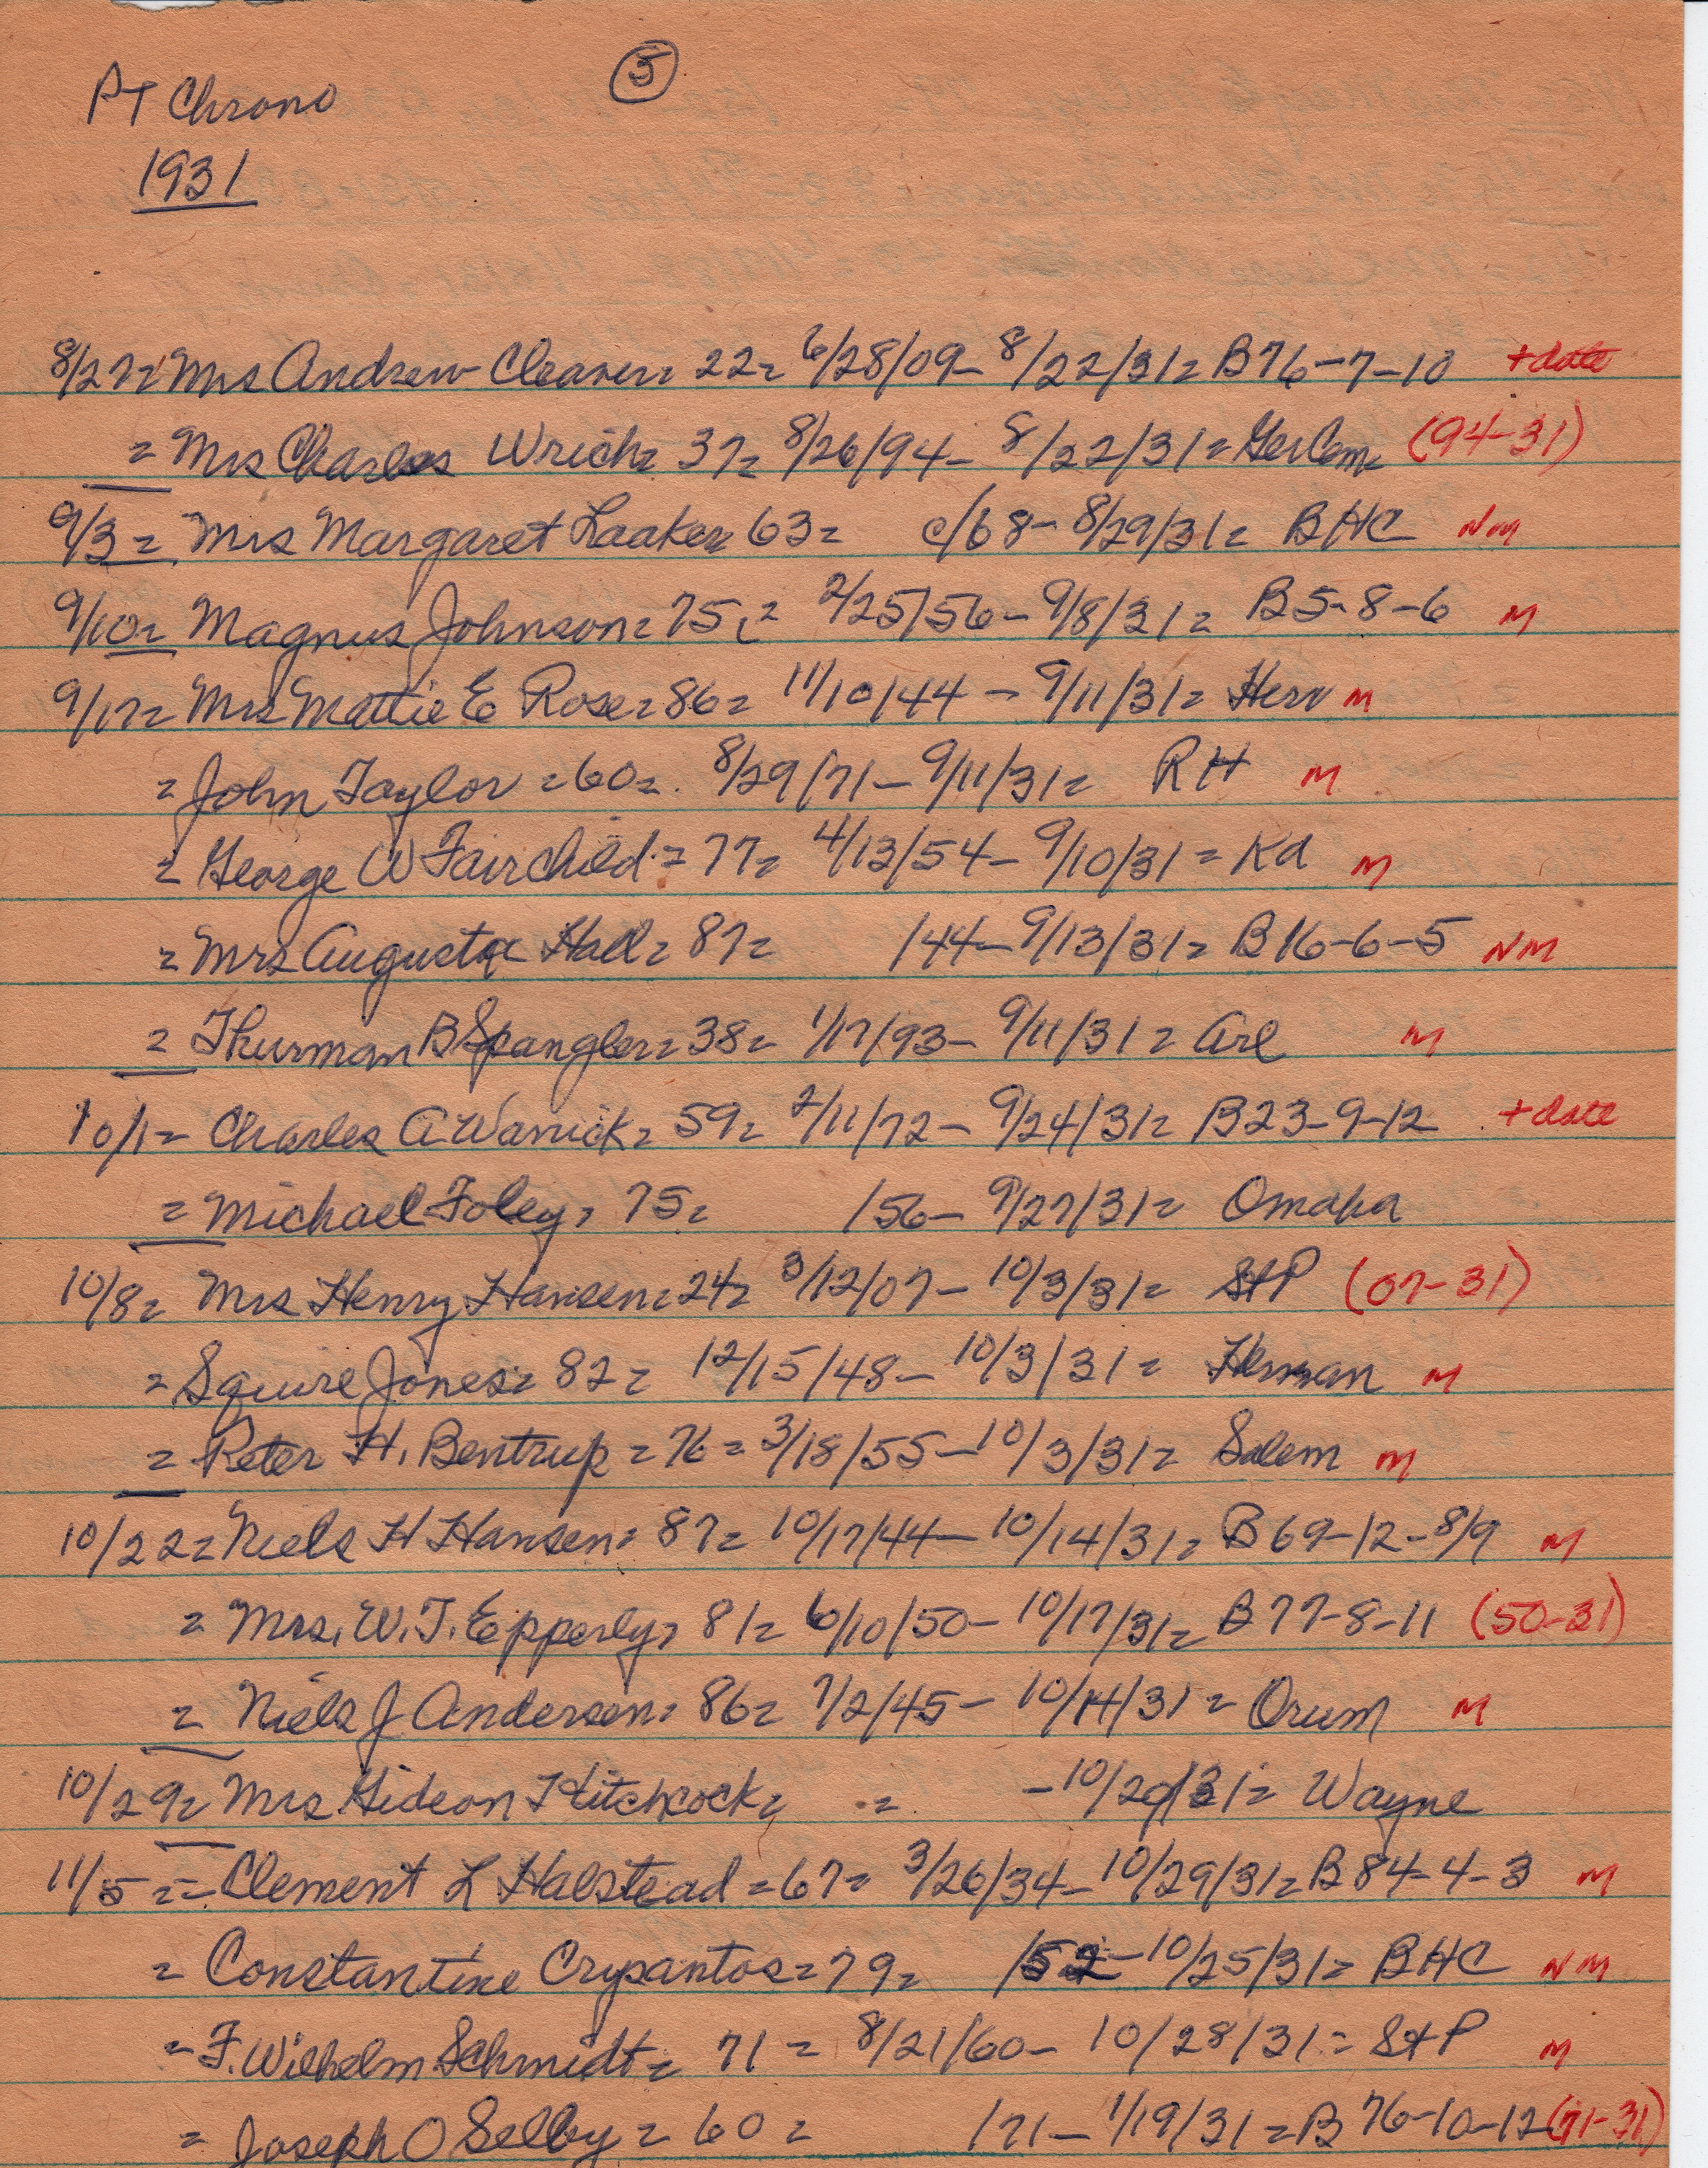 PT Chrono
5
1931
8/27= Mrs Andrew Cleaver= 22= 6/28/09- 8/22/31= B76-7-10 +date
= Mrs Charles Wrich= 37= 8/26/94- 8/22/31= GerCem= (94-31)
9/3= Mrs Margaret Laaker= 63= c/68- 8/29/31= BHC NM
9/10= Magnus Johnson= 75= 2/25/56- 9/8/31= B5-8-6 M
9/17= Mrs Mattie E Rose= 86= 11/10/44 - 9/11/31= Her M
= John Taylor =60=. 8/29/71- 9/11/31= RH M
= George W Fairchild= 77= 4/13/54- 9/10/31= Kd M
= Mrs Augusta Hall= 87= /44- 9/13/31= B16-6-5 NM
= Thurman B Spangler= 38= 1/17/93- 9/11/31= Arl M
10/1= Charles A Warrick= 59= 2/11/72- 9/24/31= B23-9-12 +date
= Michael Foley= 75= /56- 9/27/31= Omaha
10/8= Mrs Henry Hansen= 24= 3/12/07- 10/3/31= StP (07-31)
= Squire Jones= 82= 12/15/48- 10/3/31= Herman M
= Peter H. Bentrup = 76 = 3/18/55- 10/3/31= Salem M
10/22= Niels H Hansen= 87= 10/17/44- 10/14/31= B69-12-8/9 M
= Mrs. W.T. Epperly= 81= 6/10/50- 10/17/31= B77-8-11 (50-31)
= Niels J Andersen= 86= 7/2/45- 10/14/31= Orum M
10/29= Mrs Gideon Hitchcock= = -10/20/31= Wayne
11/5 == Clement L Halstead =67= 3/26/34- 10/29/31= B84-4-3 M
= Constantine Crysantos= 79= /52- 10/25/31= BHC NM
= F. Wilhelm Schmidt= 71 = 8/21/60- 10/28/31= StP M
= Joseph O Selby = 60 = /71- 1/19/31= B 76-10-12 (71-31)